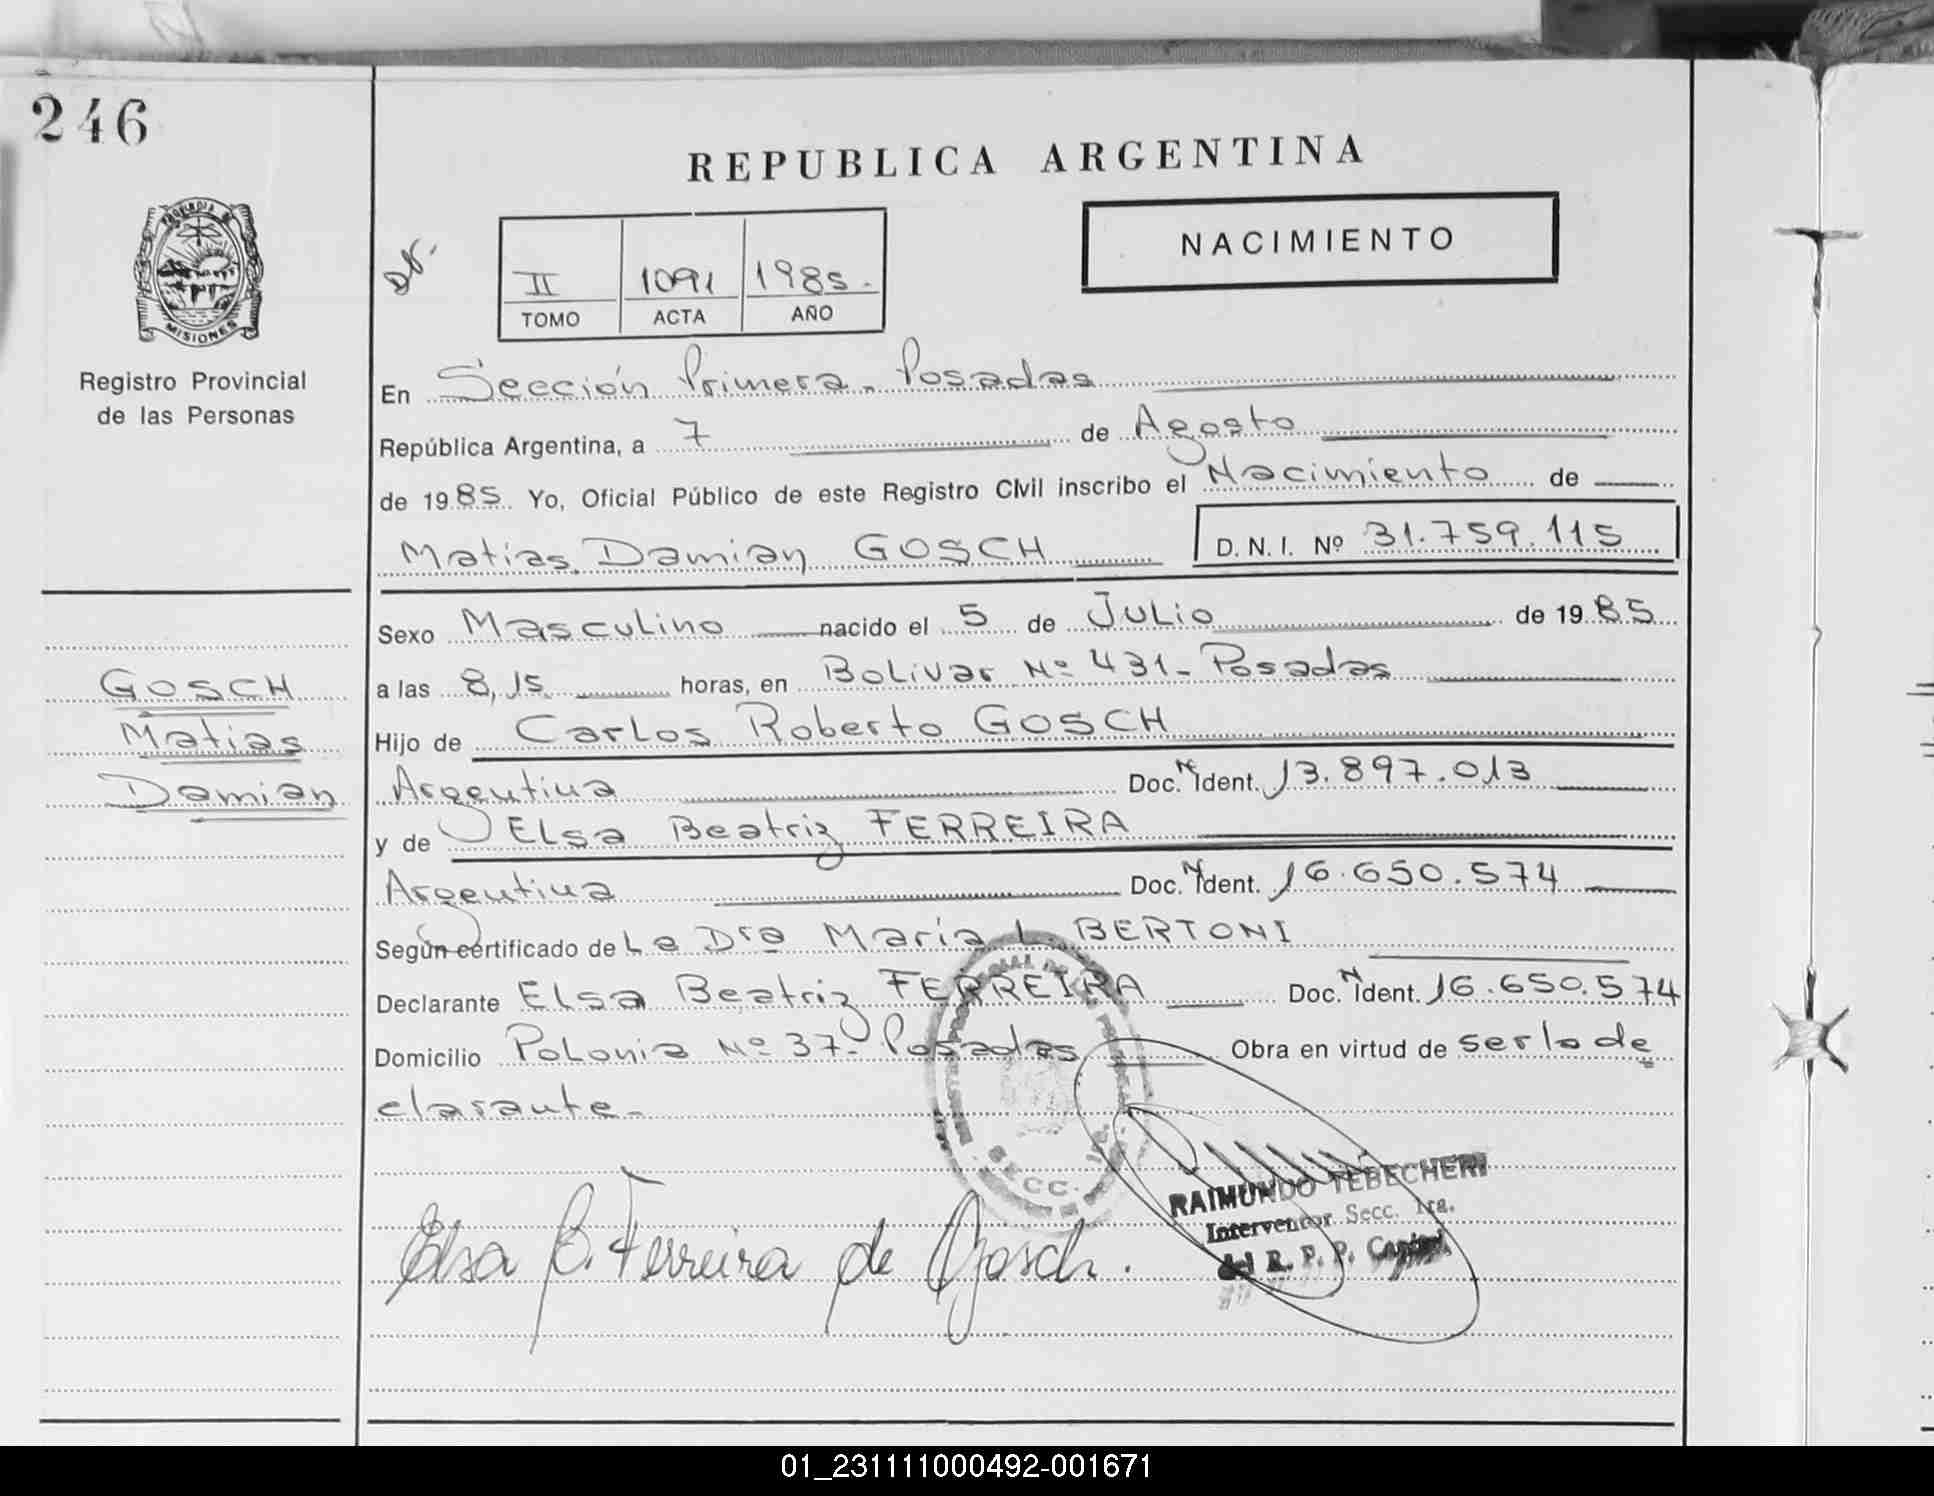 246
REPUBLICA ARGENTINA
NACIMIENTO
PROVINCIA DE
MISIONES
Registro Provincial
de las Personas
II 1091 1985.
TOMO ACTA AÑO
En Sección Primera. Posadas
República Argentina, a 7 de Agosto
de 1985. Yo, Oficial Público de este Registro Civil inscribo el Nacimiento de
Matias Damian GOSCH D. N. I. Nº 31.759.115
Sexo Masculino nacido el 5 de Julio de 1985
GOSCH
Matias
Damian
a las 8,15 horas, en Bolivar Nº 431- Posadas
Hijo de Carlos Roberto GOSCH
Argentina Doc. N Ident. 13.897.013
y de Elsa Beatriz FERREIRA
Argentina Doc. N Ident. 16.650.574
Según certificado de La Dra Maria L. BERTONI
Declarante Elsa Beatriz FERREIRA Doc. N Ident. 16.650.574
Domicilio Polonia Nº 37- Posadas Obra en virtud de ser la de
clarante-
SECC. 1ra.
Elsa B. Ferreira de Gosch.
RAIMUNDO TEBECHERI
Interventor Secc. 1ra.
del R. P. P. Capital
01_231111000492-001671